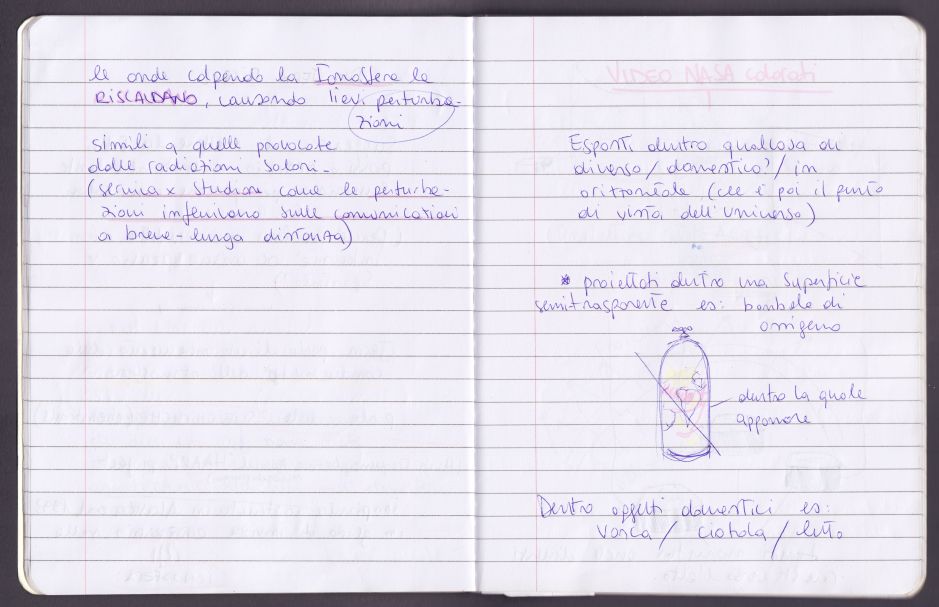 le onde colpendo la Ionosfera la
RISCALDANO, causando lievi perturba-
zioni
simili a quelle provocate
dalle radiazioni solari.
(servira x studiare come le perturba-
zioni infeniscono sulle comunicazioni
a breve-lunga distanza)
VIDEO NASA colorati
Esposti dentro qualcosa di
diverso / domestico? / in
orizzontale (che è poi il punto
di vista dell'Universo)
* proiettati dentro una superficie
semitrasparente es: bombola di
ossigeno
dentro la quale
appaiono
Dentro oggetti domestici es:
vasca / ciotola / letto